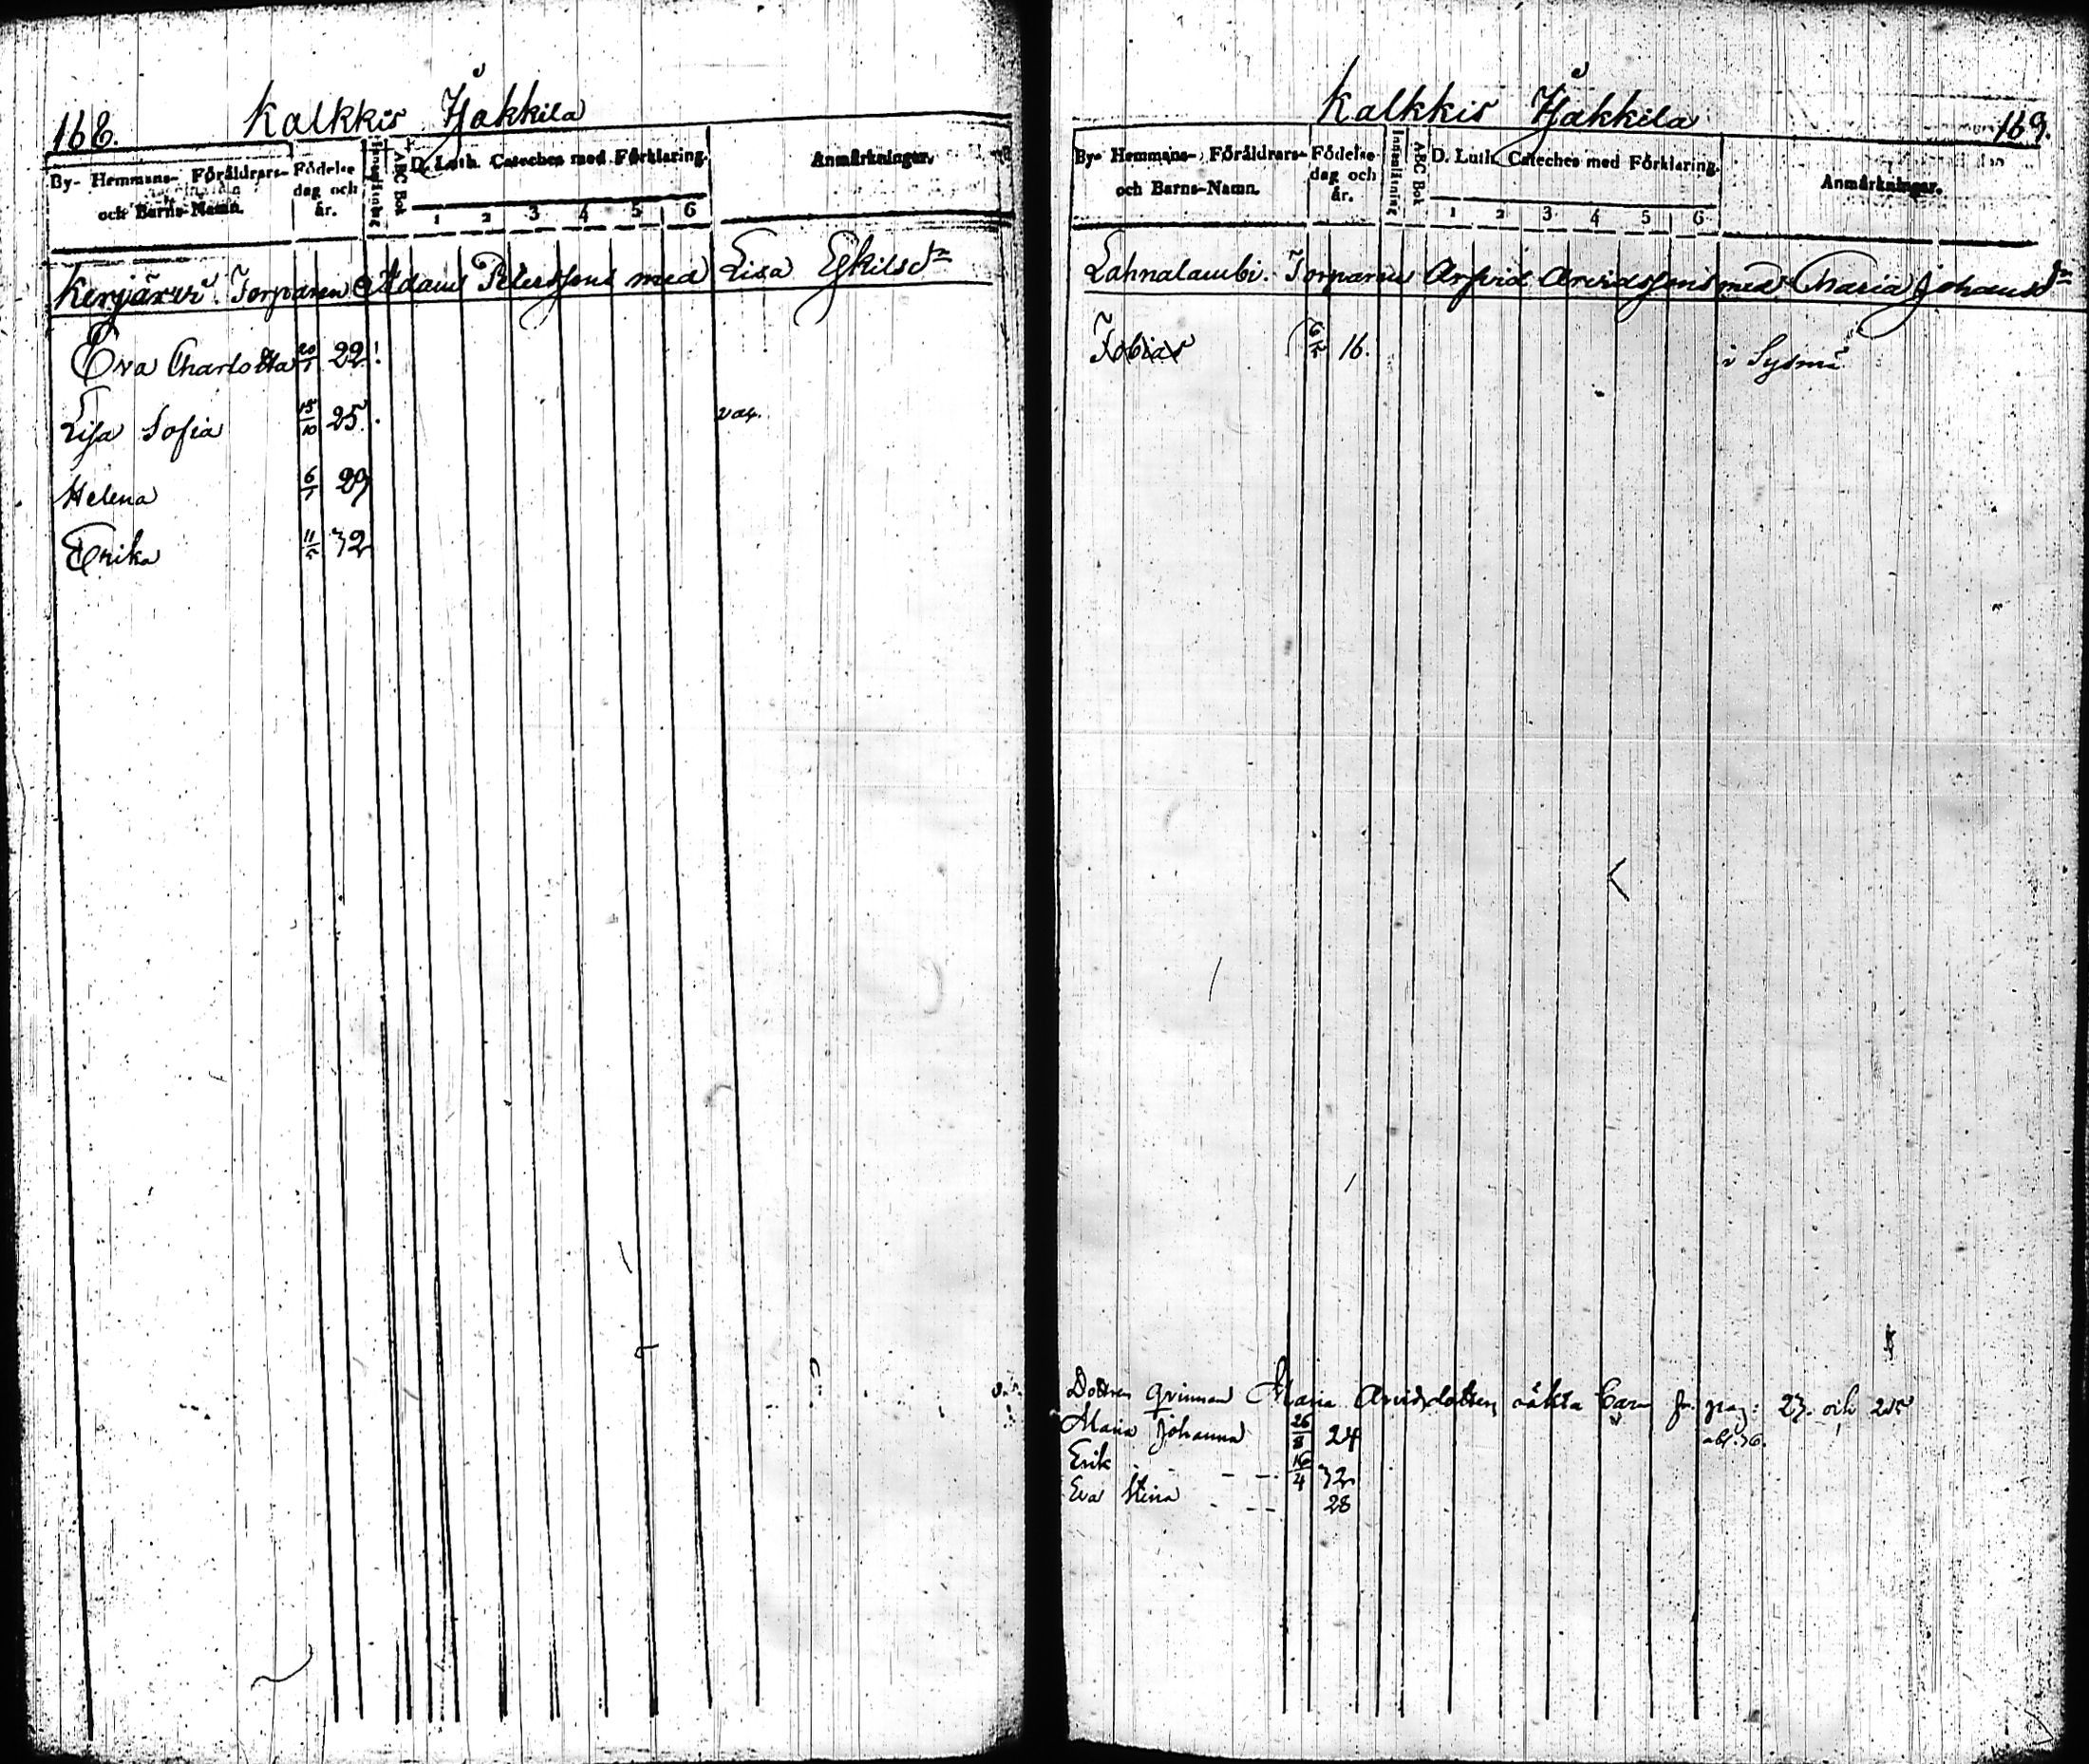 168. Kalkkis Håkkila
By- Hemmans- Föräldrars- och Barns-Namn. Födelse dag och år. Innanläsning ABC Bok D. Luth. Cateches med Förklaring. 1 2 3 4 5 6 Anmärkningar.
Kerjärvi Torparen Adam Peterssons med Lisa Eskilsdr
Eva Charlotta 20/1 22
Lisa Sofia 15/10 25 vac.
Helena 6/1 29
Erika 11/5 32
Kalkkis Håkkila 169.
By- Hemmans- Föräldrars- och Barns-Namn. Födelse dag och år. Innanläsning ABC Bok D. Luth. Cateches med Förklaring. 1 2 3 4 5 6 Anmärkningar.
Lahnalambi. Torparens Arfvid Arvidssons med Maria Johansdr
Tobias 6/5 16. i Sysmä
Dottren qvinnan Maria Arvidsdotters oäkta barn fr. pag: 27. och 205
Maria Johanna 26/8 24
Erik 16/4 32
Eva Stina 28